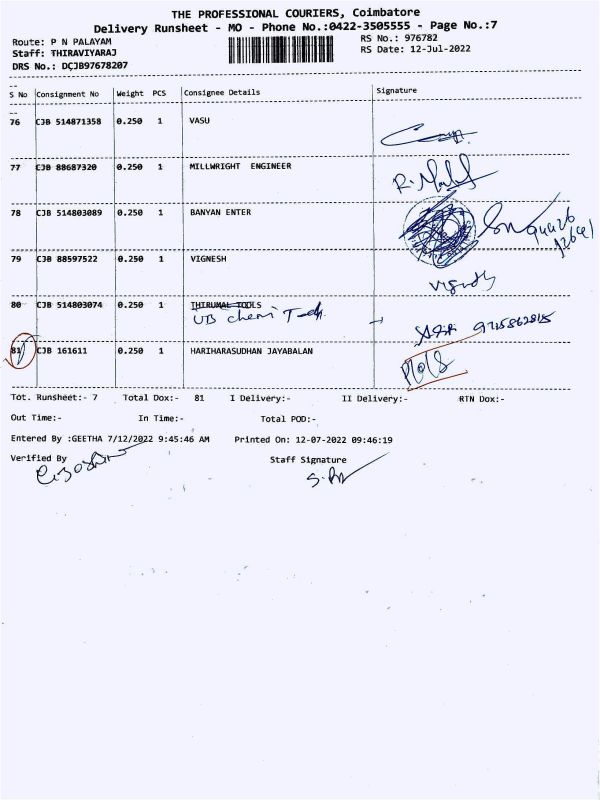 THE PROFESSIONAL COURIERS, Coimbatore
Delivery Runsheet - MO - Phone No.:0422-3505555 - Page No.:7
Route: P N PALAYAM RS No.: 976782
Staff: THIRAVIYARAJ RS Date: 12-Jul-2022
DRS No.: DCJB97678207
S No Consignment No Weight PCS Consignee Details Signature
76 CJB 514871358 0.250 1 VASU
77 CJB 88687320 0.250 1 MILLWRIGHT ENGINEER
78 CJB 514803089 0.250 1 BANYAN ENTER
79 CJB 88597522 0.250 1 VIGNESH
80 CJB 514803074 0.250 1 THIRUMAL TOOLS
UB Chemi Tech
81 CJB 161611 0.250 1 HARIHARASUDHAN JAYABALAN
Tot. Runsheet:- 7 Total Dox:- 81 I Delivery:- II Delivery:- RTN Dox:-
Out Time:- In Time:- Total POD:-
Entered By :GEETHA 7/12/2022 9:45:46 AM Printed On: 12-07-2022 09:46:19
Verified By Staff Signature